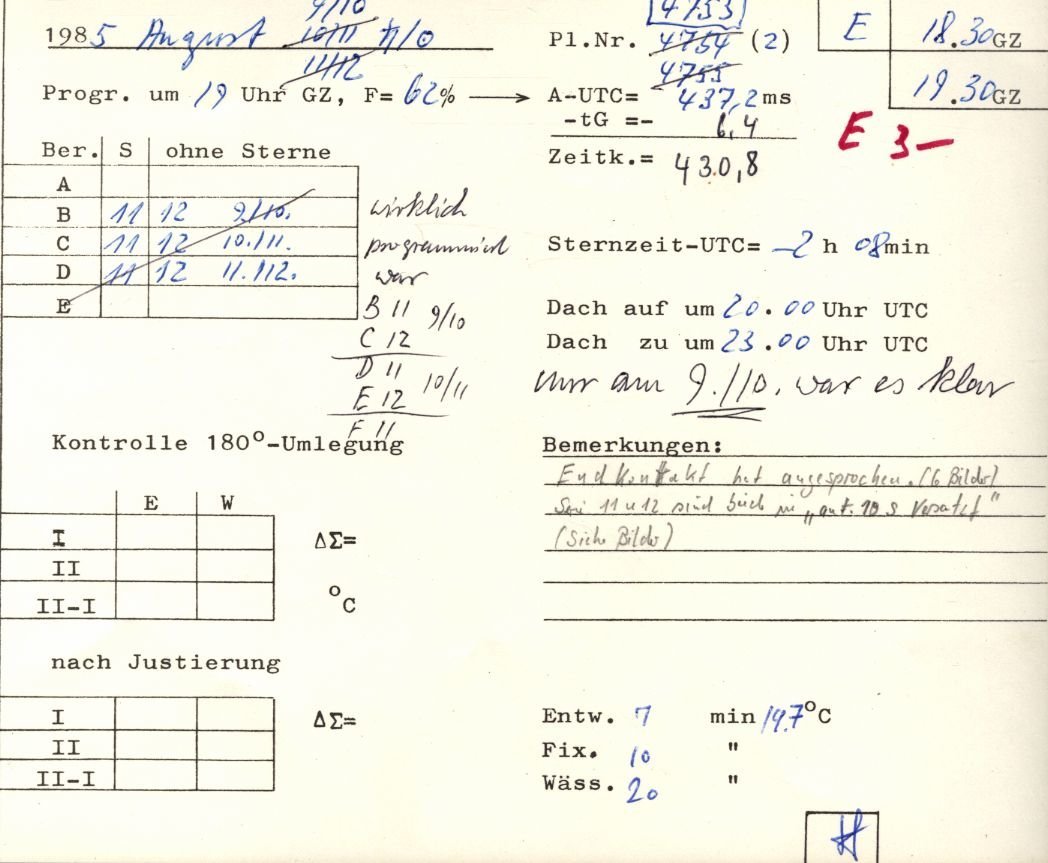 9/10
1985 August 10/11
11/12
Progr. um 19 Uhr GZ, F= 62%
4753
Pl.Nr. 4754 (2)
4755
A-UTC= 437,2 ms
-tG =- 6,4
Zeitk.= 430,8
E 18.30 GZ
19.30 GZ
E 3-
Ber. S ohne Sterne
A
B 11 12 9./10.
C 11 12 10./11.
D 11 12 11./12.
E
wirklich
programmiert
war
B 11 9/10
C 12
D 11 10/11
E 12
F 11
Sternzeit-UTC= -2 h 08min
Dach auf um 20.00 Uhr UTC
Dach zu um 23.00 Uhr UTC
nur am 9./10. war es klar
Kontrolle 180°-Umlegung
E W
I ΔΣ=
II
II-I °C
Bemerkungen:
Endkontakt hat angesprochen. (6 Bilder)
11 u 12 sind "10 s Versatz"
(Siehe Bilder)
nach Justierung
I ΔΣ=
II
II-I
Entw. 7 min 19,7°C
Fix. 10 "
Wäss. 20 "